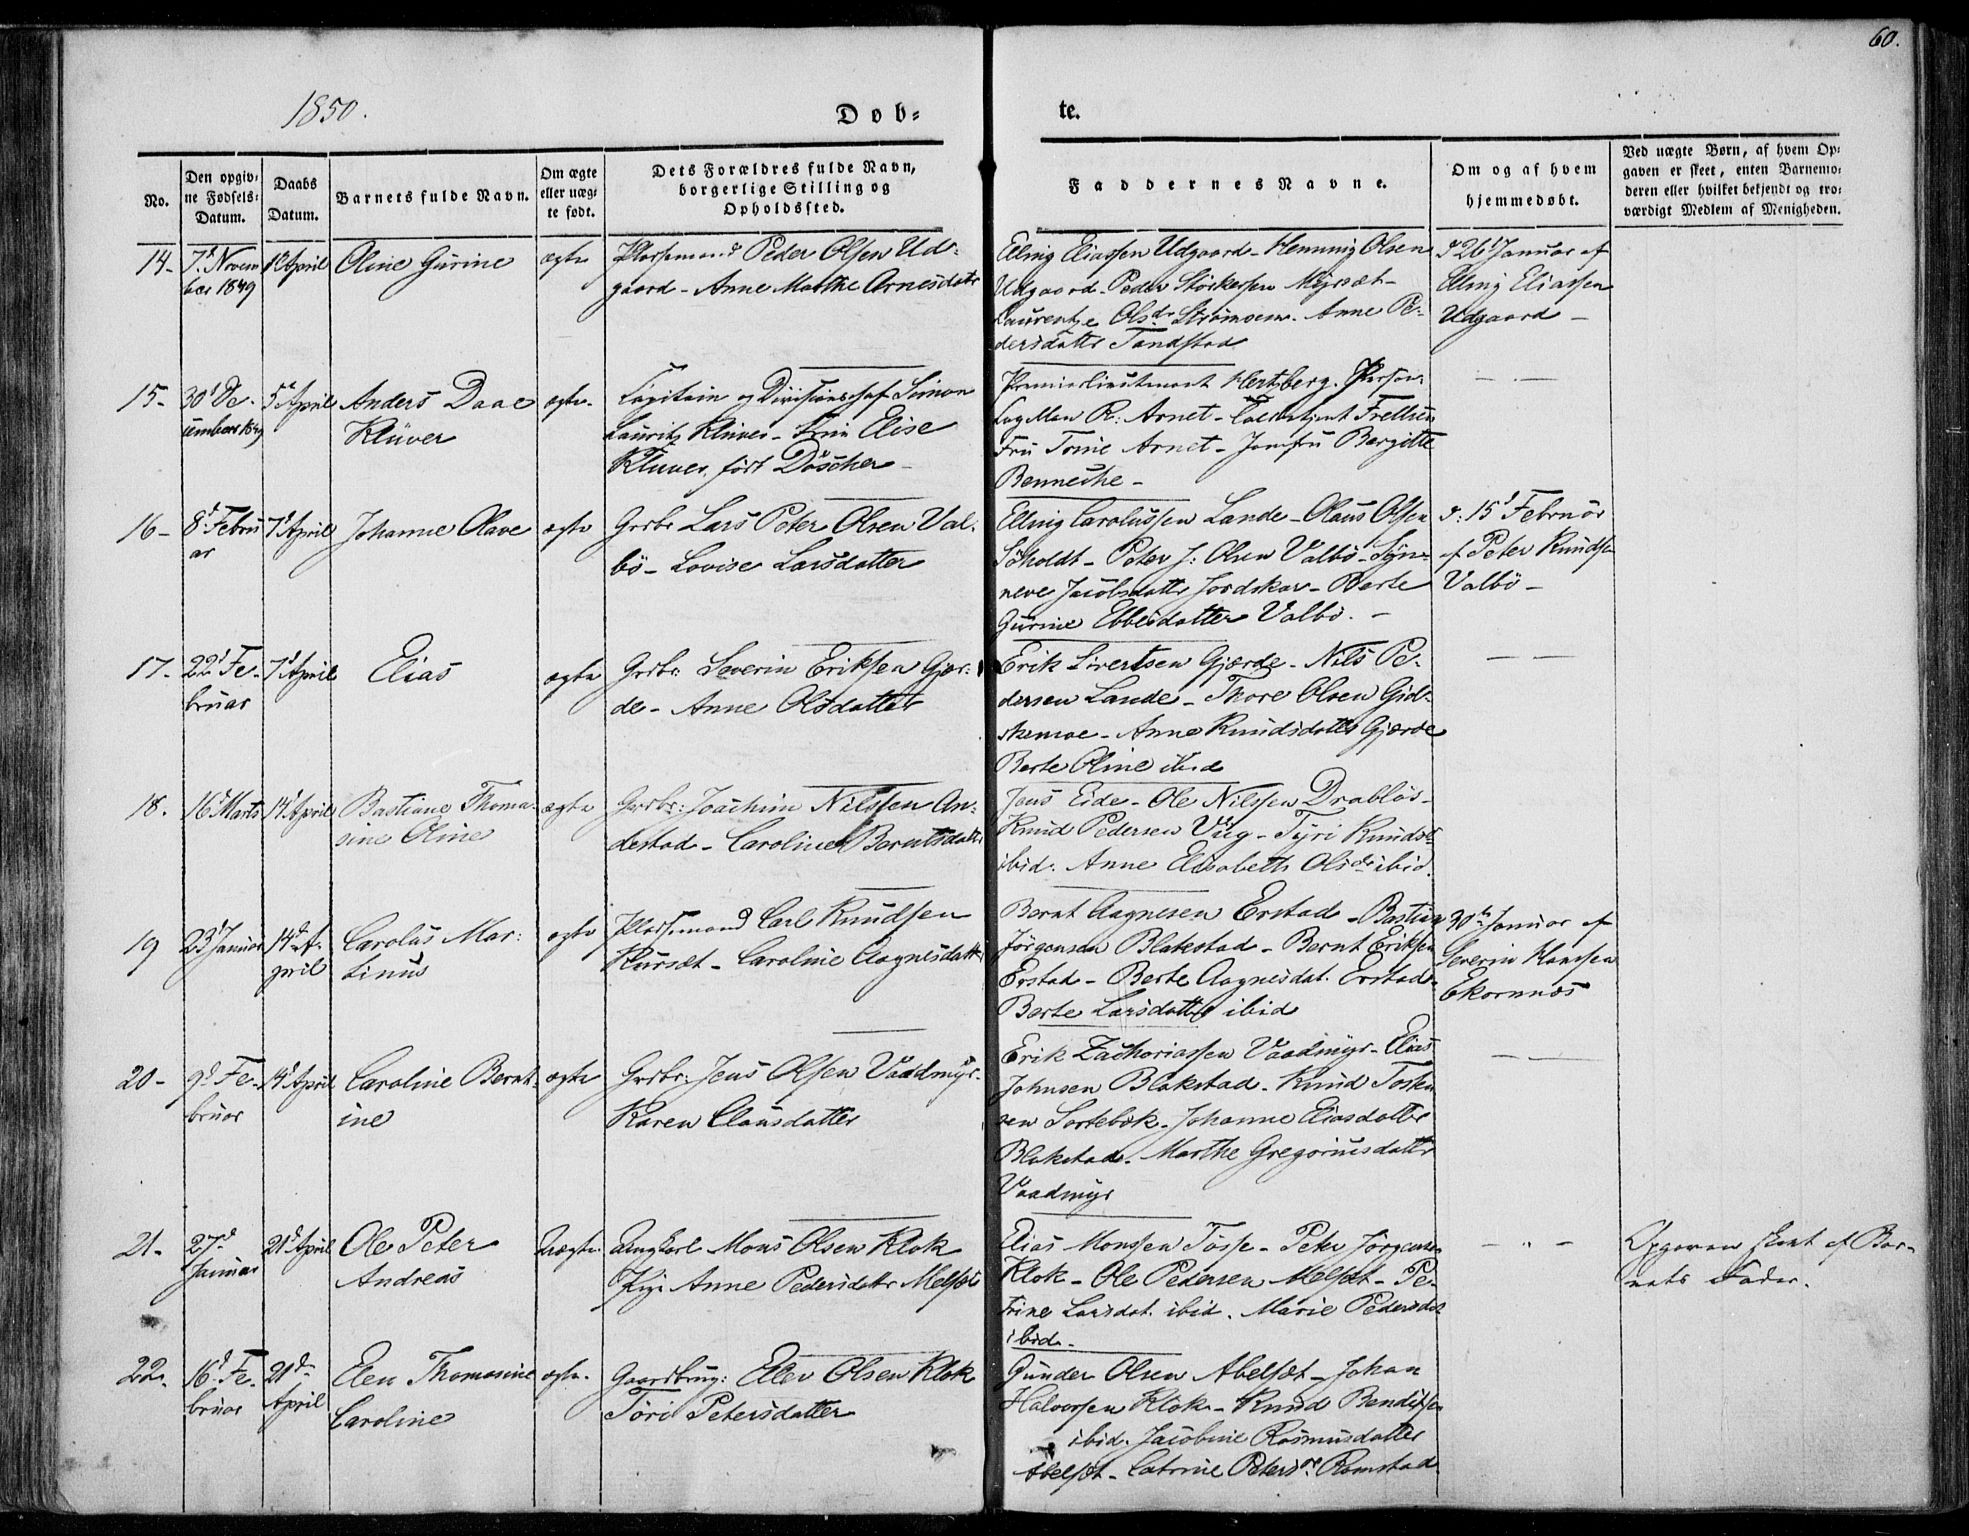 60.
1850.
Døb-
te.
No.
Den opgiv-
ne Fødsels-
Datum.
Daabs
Datum.
Barnets fulde Navn.
Om ægte
eller uæg-
te født.
Dets Forældres fulde Navn,
borgerlige Stilling og
Opholdssted.
Faddernes Navne.
Om og af hvem
hjemmedøbt.
Ved uægte Børn, af hvem Op-
gaven er skeet, enten Barnemo-
deren eller hvilket bekjendt og tro-
værdigt Medlem af Menigheden.
14-
7d Novem
ber 1849
1d April
Oline Gurine
ægte
Pladsmand Peder Olsen Ud-
gaard - Anne Marthe Arnesdatr
Elling Eliassen Udgaard - Henning Olsen
Udgaard - Peder Størkersen Myrsæt -
Laurentze Olsdr Strømmen. Anne Pe-
dersdatter Tandstad
d 26d Januar af
Elling Eliassen
Udgaard -
15-
30d De-
cember 1849
5d April
Anders Daae
Klüver
ægte
Capitain og Divisionschef Simon
Lauritz Klüver - Fru Elise
Klüver, født Döscher -
Premierlieutenant Hertzberg.
R: Arnet -
Fru Arnet - Jomfru Bergitte
Benneche -
16-
8d Febru
ar
7d April
Johanne Olave
ægte
Grdbr Lars Peter Olsen Val-
bö - Lovise Larsdatter
Elling Carolussen Lande - Olaus Olsen
Söholdt - Peter J: Olsen Valbö - Syn-
neve Jacobsdatter Jordskar - Berte
Gurine Ebbesdatter Valbö. -
d: 15d Februar
af Peter Knudsen
Valbö -
17-
22d Fe-
bruar
7d April
Elias
ægte
Grdbr: Severin Eriksen Gjær-
de - Anne Olsdatter
Erik Sivertsen Gjærde - Nils Pe-
dersen Lande - Thore Olsen Gid-
skemoe - Anne Knudsdatter Gjærde
Berte Oline ibid
18.
16d Marts
14d April
Bastiane Thoma-
sine Oline
ægte
Grdbr: Joachim Nilssen An-
destad - Caroline Berntsdatter
Jens Eide - Ole Nilssen Drabløs -
Knud Pedersen Viig - Tyri Knudsd
ibid. Anne Elisabeth Olsdr ibid.
19
23d Januar
14d A-
pril
Carolus Mar-
tinus
ægte
Pladsmand Carl Knudsen
Kursæt - Caroline Aagnesdatter
Bernt Aagnesen Erstad - Bastian
Jörgensen Blakstad - Bernt Eriksen
Erstad - Berte Aagnesdat. Erstad -
Berte Larsdatter ibid
30d Januar af
Severin Hansen
Ekornnæs
20-
9d Fe-
bruar
14d April
Caroline Bernt-
ine
ægte
Grdbr: Jens Olsen Vaadmyr -
Karen Clausdatter
Erik Zachariassen Vaadmyr - Elias
Johnsen Blakstad - Knud Torsten
sen Sortebæk - Johanne Eliasdatter
Blakstad. Marthe Gregoriusdatter
Vaadmyr
21-
27d
Januar
21d April
Ole Peter
Andreas
Uægte
Ungkarl Mons Olsen Klok
Pige Anne Pedersdatter Melsæt
Elias Monssen Tösse - Peter Jörgensen
Klok - Ole Pedersen Melsæt - Pe-
trine Larsdat. ibid. Marie Pedersdat
ibid.
Opgaven skeet af Bar-
nets Fader.
22.
16d Fe-
bruar
21d
April
Elen Thomasine
Caroline
ægte
Gaardbrug: Ellev Olsen Klok
Töri Petersdatter
Gunder Olsen Abelsæt - Johan
Halvorsen Klok - Knud Bendixsen
ibid. Jacobine Rasmusdatter
Abelsæt - Catrine Petersdr Ramstad